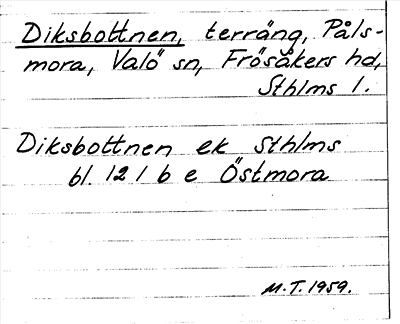 Diksbottnen, terräng, Påls-
mora, Valö sn, Frösåkers hd,
Sthlms l.
Diksbottnen ek Sthlms
bl. 121 b e Östmora
M.T. 1959.